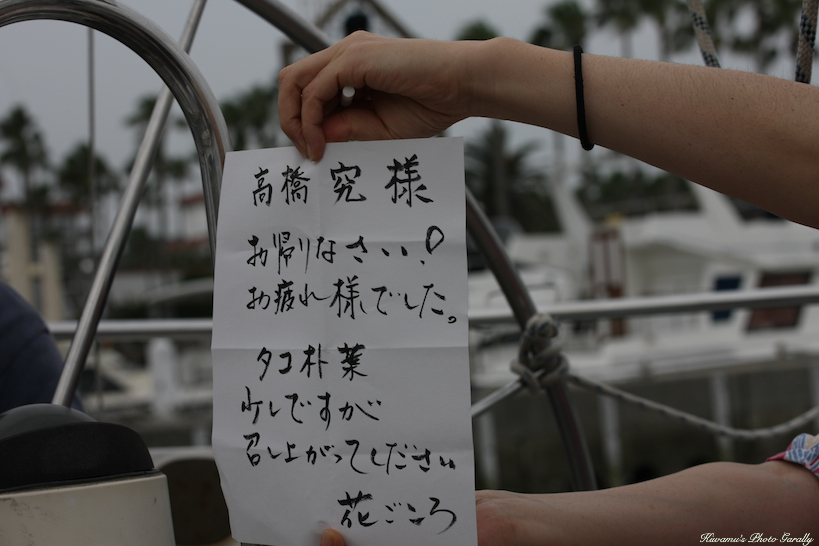 高橋 究 様
お帰りなさい!
お疲れ様でした。
タコ朴葉
少しですが
召し上がってください
花ごころ
Kuwamu's Photo Garally